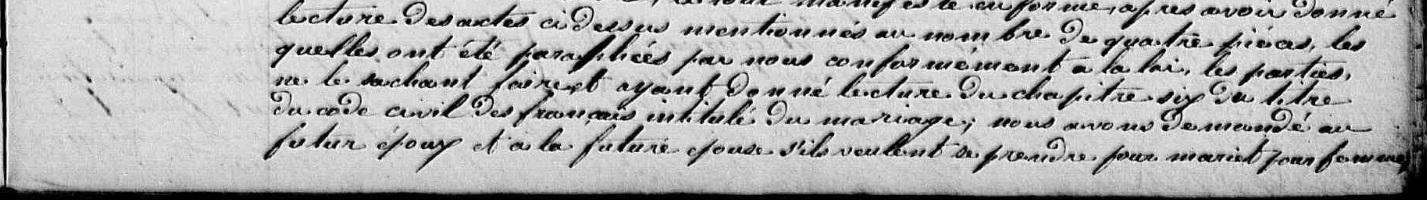 le tout manifesté en forme, après avoir donné
lecture des actes ci dessus mentionnés au nombre de quatre pièces, les
quelles ont été paraphées par nous conformément à la loi, les parties,
ne le sachant faire et ayant donné lecture du chapitre six du titre
du code civil des français intitulé du mariage; nous avons demandé au
futur époux et à la future épouse s'ils veulent se prendre pour mari et pour femme,